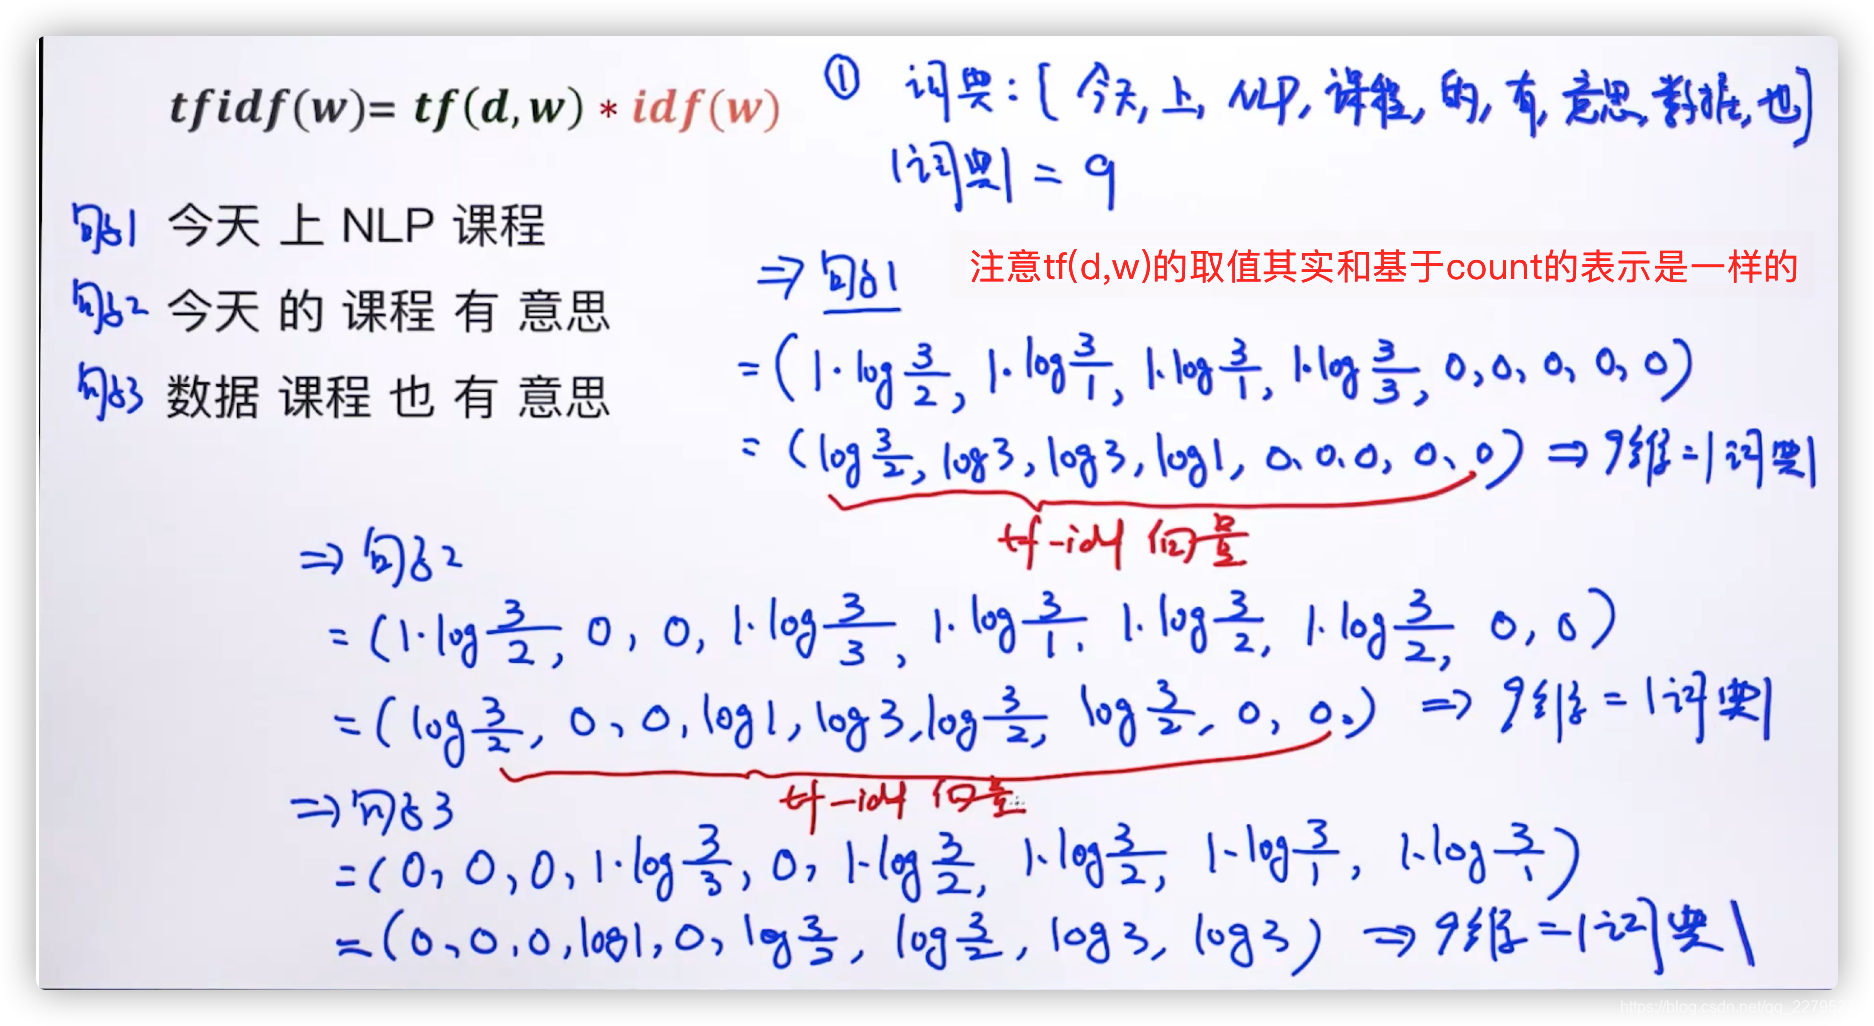 tfidf(w)= tf(d,w) * idf(w)
① 词典:[今天,上,NLP,课程,的,有,意思,数据,也]
|词典| = 9
句子1 今天 上 NLP 课程
句子2 今天 的 课程 有 意思
句子3 数据 课程 也 有 意思
⇒ 句子1
注意tf(d,w)的取值其实和基于count的表示是一样的
= (1·log 3/2, 1·log 3/1, 1·log 3/1, 1·log 3/3, 0, 0, 0, 0, 0)
= (log 3/2, log3, log3, log1, 0, 0, 0, 0, 0) ⇒ 9维 = |词典|
tf-idf 向量
⇒ 句子2
= (1·log 3/2, 0, 0, 1·log 3/3, 1·log 3/1, 1·log 3/2, 1·log 3/2, 0, 0)
= (log 3/2, 0, 0, log1, log3, log 3/2, log 3/2, 0, 0) ⇒ 9维 = |词典|
tf-idf 向量
⇒ 句子3
= (0, 0, 0, 1·log 3/3, 0, 1·log 3/2, 1·log 3/2, 1·log 3/1, 1·log 3/1)
= (0, 0, 0, log1, 0, log 3/2, log 3/2, log3, log3) ⇒ 9维 = |词典|